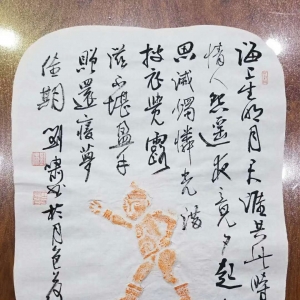 海上生明月天涯共此時
情人怨遥夜竟夕起
思滅燭憐光滿
披衣覺露
滋不堪盈手
贈還寢夢
佳期